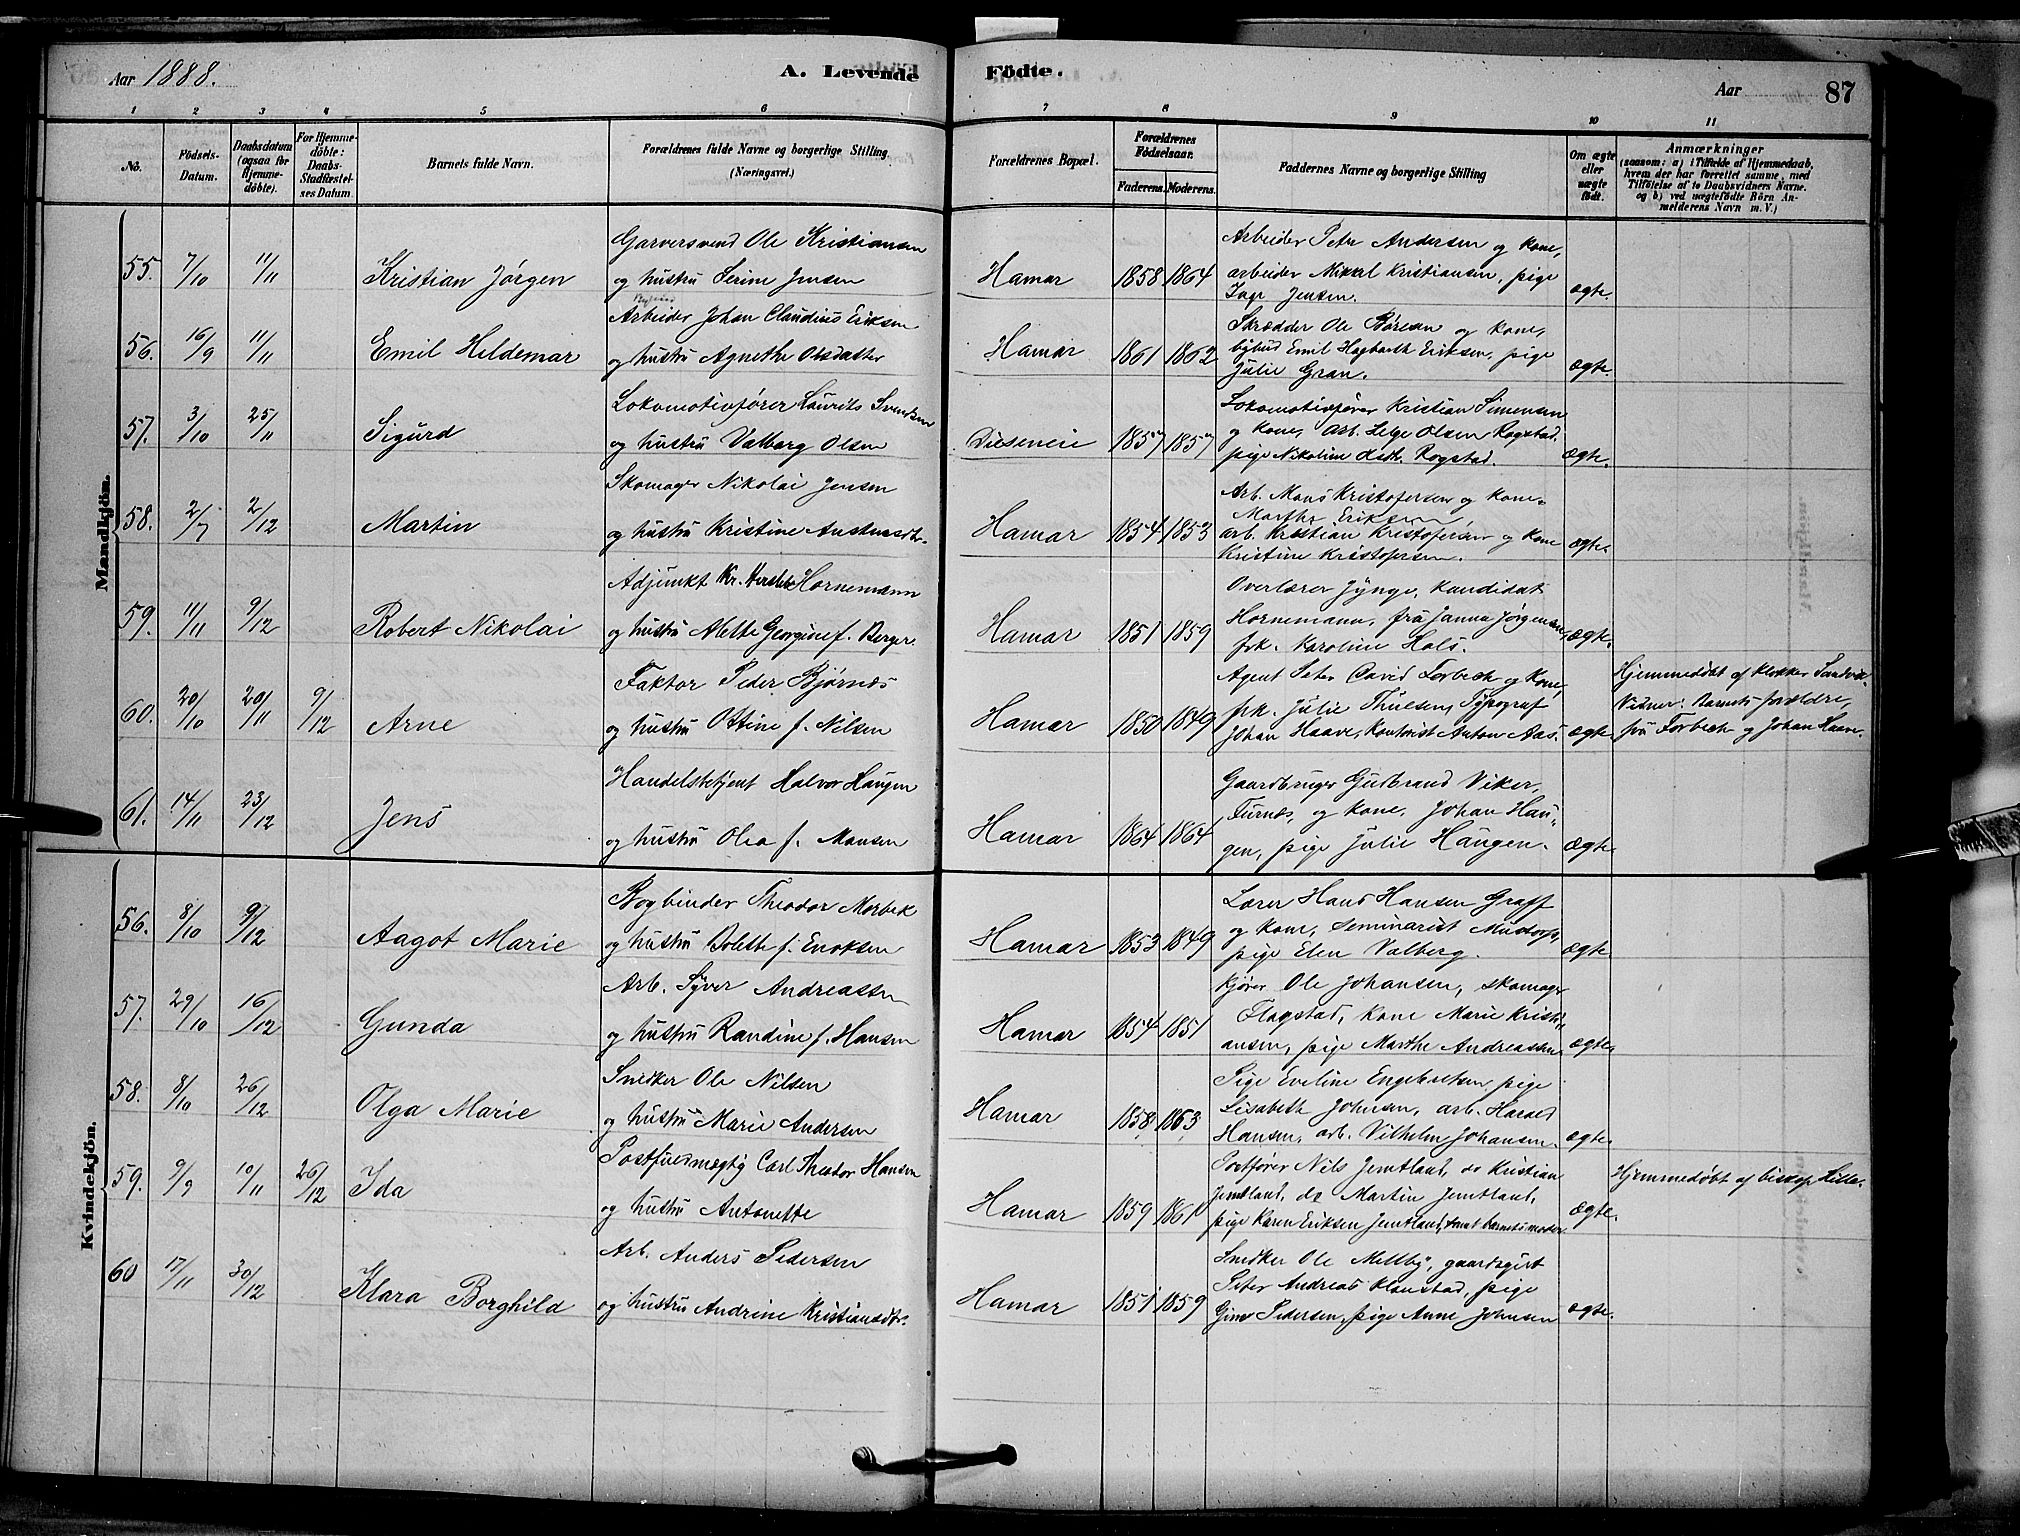 Aar 1888.
A. Levende
Födte.
Aar
87
1 2 3 4 5 6
7 8 9 10 11
No.
Födsels-
Datum.
Daabsdatum
(ogsaa for
Hjemme-
döbte).
For Hjemme-
döbte:
Daabs-
Stadfæstel-
ses Datum.
Barnets fulde Navn.
Forældrenes fulde Navne og borgerlige Stilling.
(Næringsvei.)
Forældrenes Bopæl.
Forældrenes
Födselsaar.
Faderens. Moderens.
Faddernes Navne og borgerlige Stilling
Om ægte
eller
uægte
født.
Anmærkninger
(saasom: a) i Tilfælde af Hjemmedaab,
hvem der har forrettet samme, med
Tilföielse af to Daabsvidners Navne.
og b) ved uægtefödte Börn An-
melderens Navn m. V.)
Mandkjön.
55. 7/10 11/11 Kristian Jørgen
Garversvend Ole Kristiansen
og hustru Serine Jensen
Hamar 1858 1864
Arbeider Peter Andersen og kone,
arbeider Mikkel Kristiansen, pige
Inga Jensen.
ægte.
56. 16/9 11/11 Emil Hildemar
Arbeider Johan Claudius Eriksen
og hustru Agnethe Olsdatter
Hamar 1861 1862
Skrædder Ole Børesen og kone,
bybud Emil Hagbarth Eriksen, pige
Julie Gran.
ægte.
57. 3/10 25/11 Sigurd
Lokomotivfører Laurits Svendsen
og hustru Valborg Olsen
Diseneie 1857 1857
Lokomotivfører Kristian Simensen
og kone, arb. Helge Olsen Rogstad.
pige Nikoline Osdt. Rogstad.
ægte.
58. 2/7 2/12 Martin
Skomager Nikolai Jensen
og hustru Kristine
Hamar 1854 1853
Arb. Mons Kristofersen og kone
Marthe Eriksen
arb. Kristian Kristofersen og kone
Kristine Kristofersen.
ægte.
59. 11/11 9/12 Robert Nikolai
Adjunkt Kr. Hersleb Hornemann
og hustru Alette Georgine f. Berger.
Hamar 1851 1859
Overlærer Jynge, kandidat
Hornemann, fru Janna Jørgensen,
frk. Karoline Hals.
ægte.
60. 20/10 20/11 9/12 Arne
Faktor Peder Bjørnæs
og hustru Ottine f. Nilsen
Hamar 1850 1849
Agent Peter David Forbech og kone,
frk. Julie Thulsen, Typograf
Johan Haave, kontorist Anton Aas.
ægte.
Hjemmedøbt af klokker Sandvik
Vidner: Barnets forældre,
fru Forbech og Johan Haave.
61. 14/11 23/12 Jens
Handelsbetjent Halvor Haugen
og hustru Olea f. Monsen
Hamar 1864 1864
Gaardbruger Gudbrand Viker,
Furnæs, og kone, Johan Hau-
gen, pige Julie Haugen.
ægte.
Kvindekjön.
56. 8/10 9/12 Aagot Marie
Bogbinder Theodor Morbek
og hustru Bolette f. Enoksen
Hamar 1853 1849
Lærer Hans Hansen Graff
og kone, seminarist Mustorp,
pige Elen Valberg.
ægte
57. 29/10 16/12 Gunda
Arb. Syver Andreassen
og hustru Randine f. Hansen
Hamar 1854 1851
Kjører Ole Johansen, skomager
Flagstad, kone Marie Kristi-
ansen, pige Marthe Andreassen.
ægte.
58. 8/10 26/12 Olga Marie
Snedker Ole Nilsen
og hustru Marie Andersen
Hamar 1858 1863
Pige Eveline Engebretsen, pige
Lisabeth Johnsen, arb. Harald
Hansen, arb. Vilhelm Johansen.
ægte.
59. 9/9 10/11 26/12 Ida
Postfuldmægtig Carl Theodor Hansen
og hustru Antonette
Hamar 1859 1861
Postfører Nils Jemtland, do Kristian
Jemtland, do Martin Jemtland,
pige Karen Eriksen Jemtland, samt barnets moder.
ægte.
Hjemmedøbt af biskop Hille.
60 17/11 30/12 Klara Borghild
Arb. Anders Pedersen
og hustru Andrine Kristiansdtr.
Hamar 1851 1859
Snedker Ole Mellby, gaardsgut
Peter Andreas Klanstad, pige
Gina Pedersen, pige Anne Johnsen
ægte.